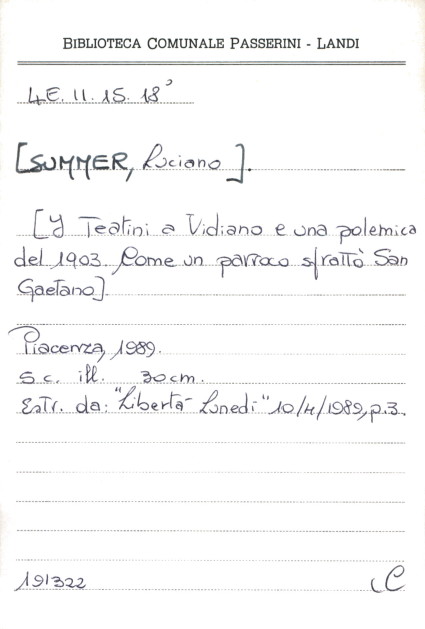 BIBLIOTECA COMUNALE PASSERINI - LANDI
4E. II. 15. 18³
[SUMMER, Luciano].
[I Teatini a Vidiano e una polemica
del 1903. Come un parroco sfrattò San
Gaetano].
Piacenza, 1989.
s.c. ill. 30cm.
Estr. da: "Libertà Lunedì" 10/4/1989, p.3.
191322
C